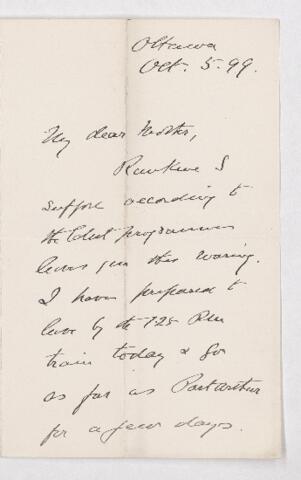 Ottawa
Oct. 5. 99.
My dear Mother,
Rankine I
suppose according to
the latest programme
leaves you this evening.
I have prepared to
leave by the 125 PM
train today & go
as far as Port Arthur
for a few days.